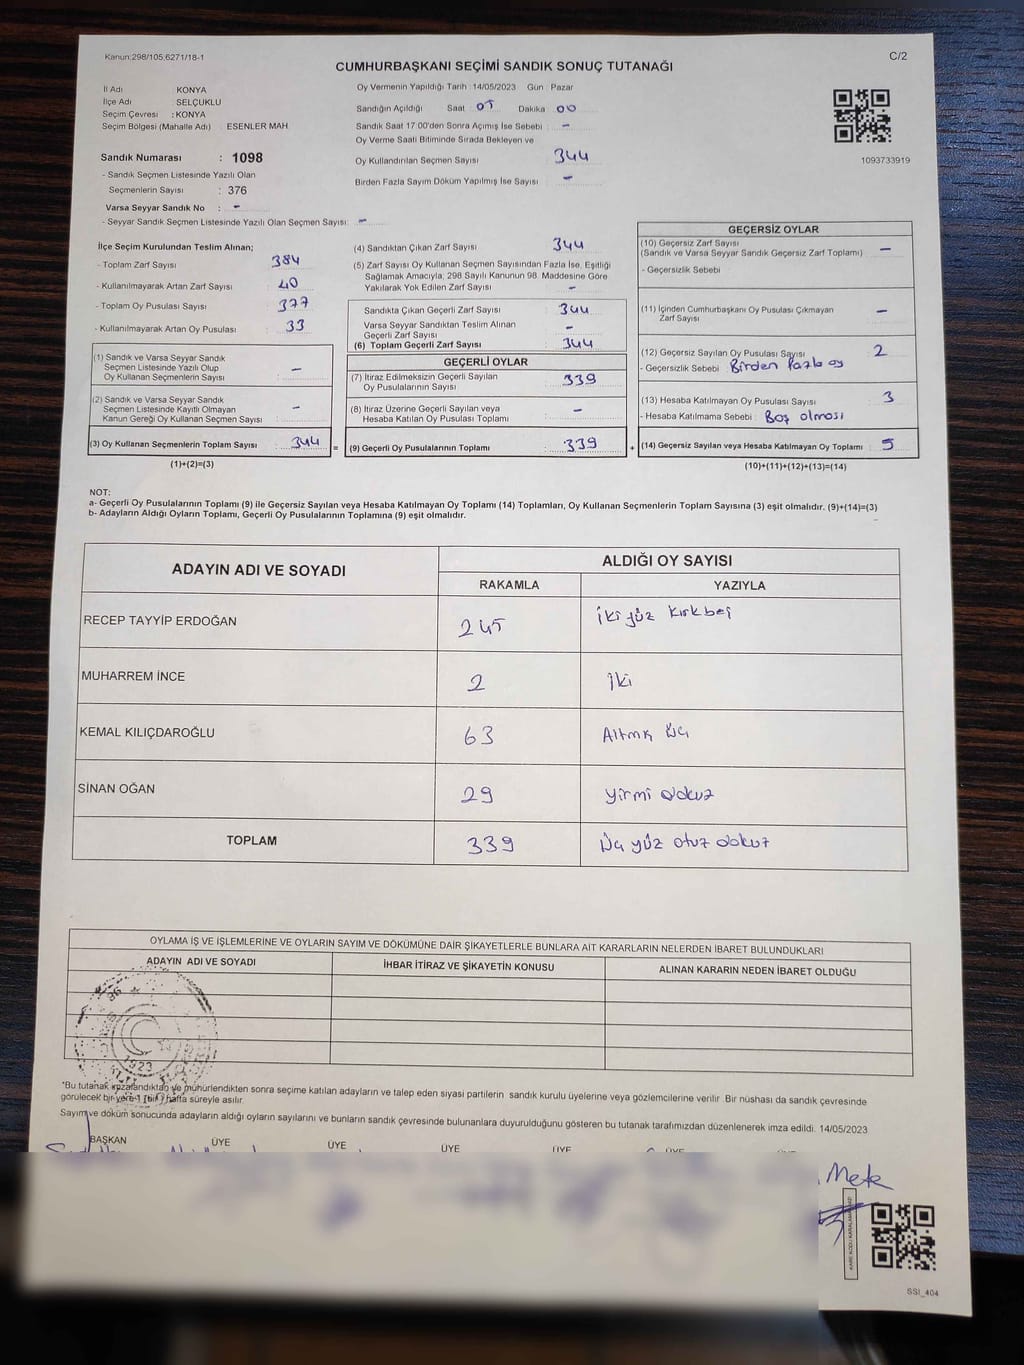 Kanun:298/105;6271/18-1
C/2
CUMHURBAŞKANI SEÇİMİ SANDIK SONUÇ TUTANAĞI
İl Adı KONYA
İlçe Adı SELÇUKLU
Seçim Çevresi : KONYA
Seçim Bölgesi (Mahalle Adı) ESENLER MAH
Sandık Numarası : 1098
- Sandık Seçmen Listesinde Yazılı Olan
Seçmenlerin Sayısı : 376
Varsa Seyyar Sandık No : -
- Seyyar Sandık Seçmen Listesinde Yazılı Olan Seçmen Sayısı: -
Oy Vermenin Yapıldığı Tarih 14/05/2023 Gün Pazar
Sandığın Açıldığı Saat 05 Dakika 00
Sandık Saat 17:00'den Sonra Açımış İse Sebebi -
Oy Verme Saati Bitiminde Sırada Bekleyen ve
Oy Kullandırılan Seçmen Sayısı 344
Birden Fazla Sayım Döküm Yapılmış İse Sayısı -
1093733919
İlçe Seçim Kurulundan Teslim Alınan;
- Toplam Zarf Sayısı 384
- Kullanılmayarak Artan Zarf Sayısı 40
- Toplam Oy Pusulası Sayısı 377
- Kullanılmayarak Artan Oy Pusulası 33
(1) Sandık ve Varsa Seyyar Sandık
Seçmen Listesinde Yazılı Olup
Oy Kullanan Seçmenlerin Sayısı -
(2) Sandık ve Varsa Seyyar Sandık
Seçmen Listesinde Kayıtlı Olmayan
Kanun Gereği Oy Kullanan Seçmen Sayısı -
(3) Oy Kullanan Seçmenlerin Toplam Sayısı 344 =
(1)+(2)=(3)
(4) Sandıktan Çıkan Zarf Sayısı 344
(5) Zarf Sayısı Oy Kullanan Seçmen Sayısından Fazla İse, Eşitliği
Sağlamak Amacıyla; 298 Sayılı Kanunun 98. Maddesine Göre
Yakılarak Yok Edilen Zarf Sayısı -
Sandıkta Çıkan Geçerli Zarf Sayısı 344
Varsa Seyyar Sandıktan Teslim Alınan
Geçerli Zarf Sayısı -
(6) Toplam Geçerli Zarf Sayısı 344
GEÇERLİ OYLAR
(7) İtiraz Edilmeksizin Geçerli Sayılan
Oy Pusulalarının Sayısı 339
(8) İtiraz Üzerine Geçerli Sayılan veya
Hesaba Katılan Oy Pusulası Toplamı -
(9) Geçerli Oy Pusulalarının Toplamı 339 +
GEÇERSİZ OYLAR
(10) Geçersiz Zarf Sayısı
(Sandık ve Varsa Seyyar Sandık Geçersiz Zarf Toplamı) -
- Geçersizlik Sebebi
(11) İçinden Cumhurbaşkanı Oy Pusulası Çıkmayan
Zarf Sayısı -
(12) Geçersiz Sayılan Oy Pusulası Sayısı 2
- Geçersizlik Sebebi : Birden fazla oy
(13) Hesaba Katılmayan Oy Pusulası Sayısı 3
- Hesaba Katılmama Sebebi : Boş olması
(14) Geçersiz Sayılan veya Hesaba Katılmayan Oy Toplamı 5
(10)+(11)+(12)+(13)=(14)
NOT:
a- Geçerli Oy Pusulalarının Toplamı (9) ile Geçersiz Sayılan veya Hesaba Katılmayan Oy Toplamı (14) Toplamları, Oy Kullanan Seçmenlerin Toplam Sayısına (3) eşit olmalıdır. (9)+(14)=(3)
b- Adayların Aldığı Oyların Toplamı, Geçerli Oy Pusulalarının Toplamına (9) eşit olmalıdır.
ADAYIN ADI VE SOYADI
ALDIĞI OY SAYISI
RAKAMLA YAZIYLA
RECEP TAYYİP ERDOĞAN 245 iki yüz kırkbeş
MUHARREM İNCE 2 İki
KEMAL KILIÇDAROĞLU 63 Altmış üç
SİNAN OĞAN 29 yirmi dokuz
TOPLAM 339 Üç yüz otuz dokuz
OYLAMA İŞ VE İŞLEMLERİNE VE OYLARIN SAYIM VE DÖKÜMÜNE DAİR ŞİKAYETLERLE BUNLARA AİT KARARLARIN NELERDEN İBARET BULUNDUKLARI
ADAYIN ADI VE SOYADI
İHBAR İTİRAZ VE ŞİKAYETİN KONUSU
ALINAN KARARIN NEDEN İBARET OLDUĞU
1923
"Bu tutanak imzalandıktan ve mühürlendikten sonra seçime katılan adayların ve talep eden siyasi partilerin sandık kurulu üyelerine veya gözlemcilerine verilir. Bir nüshası da sandık çevresinde
görülecek bir yere 1 (bir) hafta süreyle asılır.
Sayım ve döküm sonucunda adayların aldığı oyların sayılarını ve bunların sandık çevresinde bulunanlara duyurulduğunu gösteren bu tutanak tarafımızdan düzenlenerek imza edildi. 14/05/2023
BAŞKAN ÜYE ÜYE ÜYE ÜYE ÜYE
SSI_404